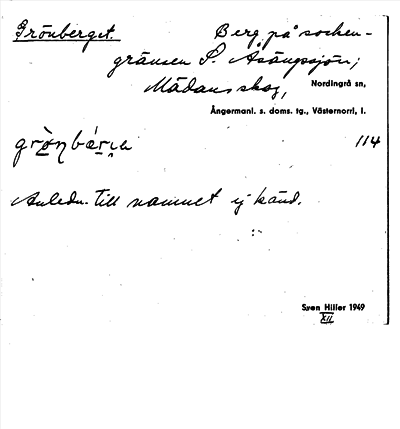 Grönberget. Berg på socken-
gränsen S. Åsängssjön;
Mädans skog, Nordingrå sn,
Ångermanl. s. doms. tg., Västernorrl, l.
grò̱ŋbá̱rɪa 114
Anledn. till namnet ej känd.
Sven Hiller 1949
XII